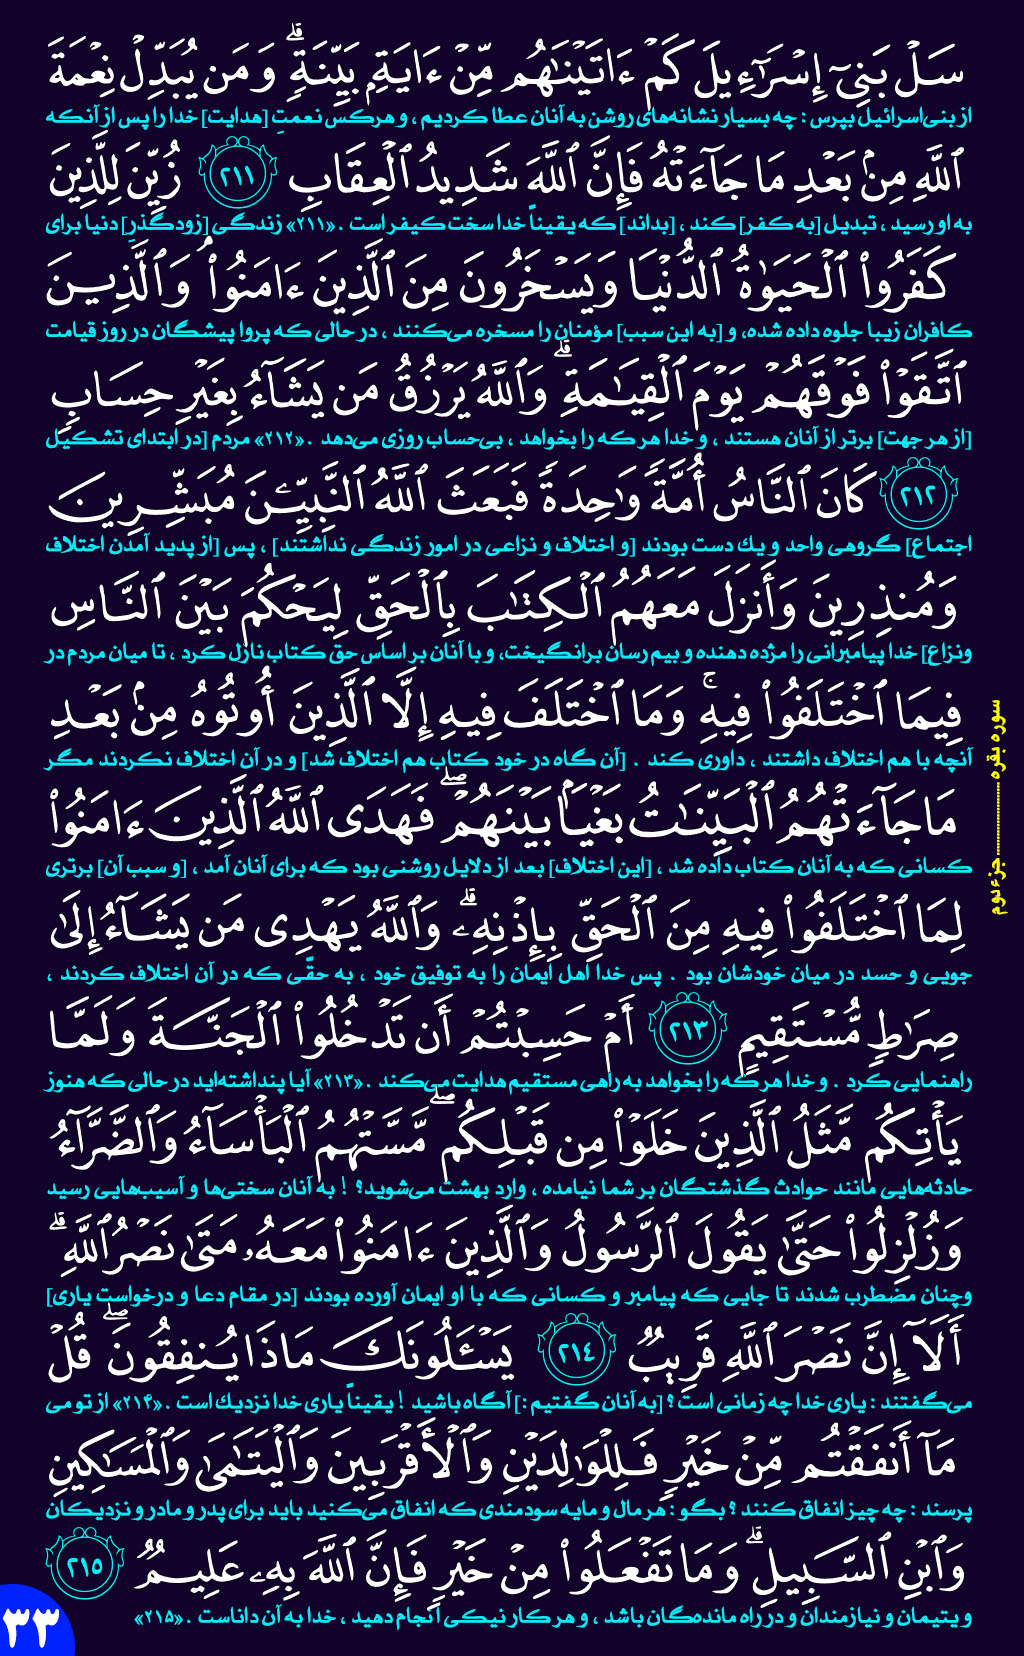 سَلْ بَنِىٓ إِسْرَٰٓءِيلَ كَمْ ءَاتَيْنَٰهُم مِّنْ ءَايَةٍۭ بَيِّنَةٍۗ وَمَن يُبَدِّلْ نِعْمَةَ
از بنی‌اسرائیل بپرس : چه بسیار نشانه‌های روشن به آنان عطا کردیم ، و هرکس نعمتِ [هدایت] خدا را پس از آنکه
ٱللَّهِ مِنۢ بَعْدِ مَا جَآءَتْهُ فَإِنَّ ٱللَّهَ شَدِيدُ ٱلْعِقَابِ ٢١١ زُيِّنَ لِلَّذِينَ
به او رسید ، تبدیل [به کفر] کند ، [بداند] که یقیناً خدا سخت کیفر است .«۲۱۱» زندگی [زودگذرِ] دنیا برای
كَفَرُوا۟ ٱلْحَيَوٰةُ ٱلدُّنْيَا وَيَسْخَرُونَ مِنَ ٱلَّذِينَ ءَامَنُوا۟ۘ وَٱلَّذِينَ
کافران زیبا جلوه داده شده، و [به این سبب] مؤمنان را مسخره می‌کنند ، در حالی که پروا پیشگان در روز قیامت
ٱتَّقَوْا۟ فَوْقَهُمْ يَوْمَ ٱلْقِيَٰمَةِۗ وَٱللَّهُ يَرْزُقُ مَن يَشَآءُ بِغَيْرِ حِسَابٍ
[از هر جهت] برتر از آنان هستند ، و خدا هر که را بخواهد ، بی‌حساب روزی می‌دهد .«۲۱۲» مردم [در ابتدای تشکیل
٢١٢ كَانَ ٱلنَّاسُ أُمَّةً وَٰحِدَةً فَبَعَثَ ٱللَّهُ ٱلنَّبِيِّـۧنَ مُبَشِّرِينَ
اجتماع] گروهی واحد و یك دست بودند [و اختلاف و نزاعی در امور زندگی نداشتند] ، پس [از پدید آمدن اختلاف
وَمُنذِرِينَ وَأَنزَلَ مَعَهُمُ ٱلْكِتَٰبَ بِٱلْحَقِّ لِيَحْكُمَ بَيْنَ ٱلنَّاسِ
ونزاع] خدا پیامبرانی را مژده دهنده و بیم رسان برانگیخت، و با آنان بر اساس حق کتاب نازل کرد ، تا میان مردم در
فِيمَا ٱخْتَلَفُوا۟ فِيهِۚ وَمَا ٱخْتَلَفَ فِيهِ إِلَّا ٱلَّذِينَ أُوتُوهُ مِنۢ بَعْدِ
آنچه با هم اختلاف داشتند ، داوری کند . [آن گاه در خود کتاب هم اختلاف شد] و در آن اختلاف نکردند مگر
مَا جَآءَتْهُمُ ٱلْبَيِّنَٰتُ بَغْيًۢا بَيْنَهُمْۖ فَهَدَى ٱللَّهُ ٱلَّذِينَ ءَامَنُوا۟
کسانی که به آنان کتاب داده شد ، [این اختلاف] بعد از دلایل روشنی بود که برای آنان آمد ، [و سبب آن] برتری
لِمَا ٱخْتَلَفُوا۟ فِيهِ مِنَ ٱلْحَقِّ بِإِذْنِهِۦۗ وَٱللَّهُ يَهْدِى مَن يَشَآءُ إِلَىٰ
جویی و حسد در میان خودشان بود . پس خدا اهل ایمان را به توفیق خود ، به حقّی که در آن اختلاف کردند ،
صِرَٰطٍ مُّسْتَقِيمٍ ٢١٣ أَمْ حَسِبْتُمْ أَن تَدْخُلُوا۟ ٱلْجَنَّةَ وَلَمَّا
راهنمایی کرد . و خدا هر که را بخواهد به راهی مستقیم هدایت می‌کند .«۲۱۳» آیا پنداشته‌اید در حالی که هنوز
يَأْتِكُم مَّثَلُ ٱلَّذِينَ خَلَوْا۟ مِن قَبْلِكُمۖ مَّسَّتْهُمُ ٱلْبَأْسَآءُ وَٱلضَّرَّآءُ
حادثه‌هایی مانند حوادث گذشتگان بر شما نیامده ، وارد بهشت می‌شوید؟ ! به آنان سختی‌ها و آسیب‌هایی رسید
وَزُلْزِلُوا۟ حَتَّىٰ يَقُولَ ٱلرَّسُولُ وَٱلَّذِينَ ءَامَنُوا۟ مَعَهُۥ مَتَىٰ نَصْرُ ٱللَّهِۗ
وچنان مضطرب شدند تا جایی که پیامبر و کسانی که با او ایمان آورده بودند [در مقام دعا و درخواست یاری]
أَلَآ إِنَّ نَصْرَ ٱللَّهِ قَرِيبٌ ٢١٤ يَسْـَٔلُونَكَ مَاذَا يُنفِقُونَۖ قُلْ
می‌گفتند : یاری خدا چه زمانی است ؟ [به آنان گفتیم :] آگاه باشید ! یقیناً یاری خدا نزدیك است .«۲۱۴» از تو می
مَآ أَنفَقْتُم مِّنْ خَيْرٍ فَلِلْوَٰلِدَيْنِ وَٱلْأَقْرَبِينَ وَٱلْيَتَٰمَىٰ وَٱلْمَسَٰكِينِ
پرسند : چه چیز انفاق کنند ؟ بگو : هر مال و مایه سودمندی که انفاق می‌کنید باید برای پدر و مادر و نزدیکان
وَٱبْنِ ٱلسَّبِيلِۗ وَمَا تَفْعَلُوا۟ مِنْ خَيْرٍ فَإِنَّ ٱللَّهَ بِهِۦ عَلِيمٌ ٢١٥
و یتیمان و نیازمندان و در راه مانده‌گان باشد ، و هر کار نیکی انجام دهید ، خدا به آن داناست .«۲۱۵»
سوره بقره .................. جزء دوم
۳۳